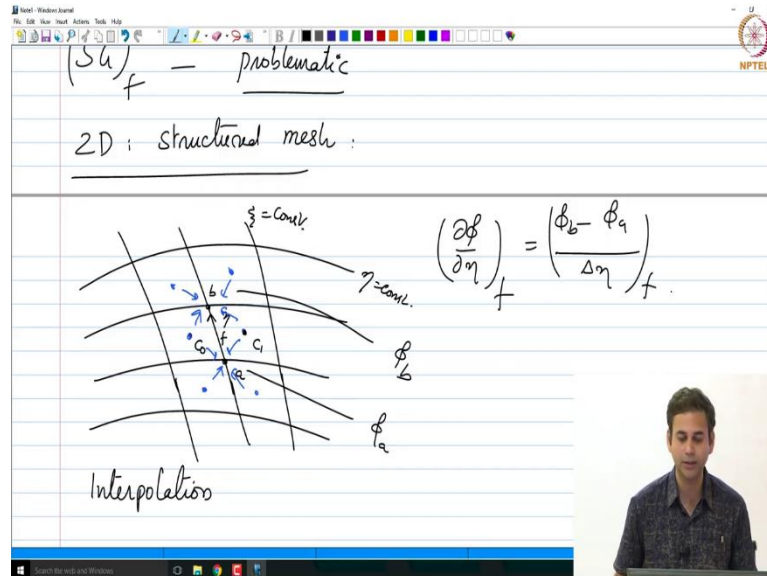 Note1 - Windows Journal
File Edit View Insert Actions Tools Help
NPTEL
f - problematic
2D : Structured mesh :
ξ = const.
η = const.
b
η
f
C₀ C₁
a
ϕ_b
ϕ_a
(∂ϕ/∂η)_f = ((ϕ_b - ϕ_a)/Δη)_f .
Interpolation
Search the web and Windows